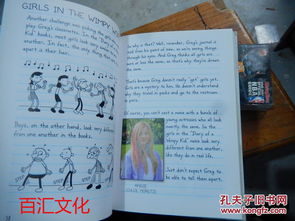 GIRLS IN THE WIMPY
Another challenge was
play Greg's classmates.
Kid" books, most girls look very
one another. In fact, the only
apart is their hair.
Boys, on the other hand, look very different
from one another in the books.
So why is that? Well, remember, Greg's journal is
told from his point of view, so we're seeing things
through his eyes. And Greg thinks all girls are
more or less the same, so that's why they're drawn
the same.
That's because Greg doesn't really "get" girls yet.
Girls are a mystery to him. He doesn't understand
why they travel in packs and go to the restroom
in pairs.
Of course, you can't cast a movie with a bunch of
young actresses who all look
exactly the same. So the
girls in the "Diary of a
Wimpy Kid" movie look very
different from one another,
like they do in real life.
Just don't expect Greg to
be able to tell them apart.
ANGIE
CHLOË MORETZ
百汇文化
孔夫子旧书网